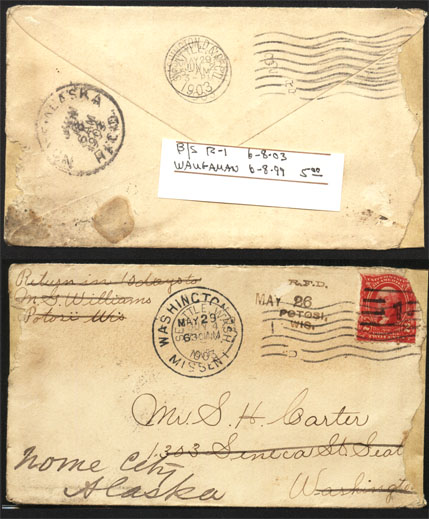 SEATTLE
1903
ALASKA
B/S R-1 6-8-03
WAUGAMAN 6-8-99 5.00
Return in 10 days to
M S Williams
Potosi Wis
WASHINGTON
MAY 29
630 AM
1903
MISSENT
R.F.D.
MAY 26
POTOSI,
WIS.
Mr S. H. Carter
1303 Seneca St Seat
Washington
Nome City,
Alaska